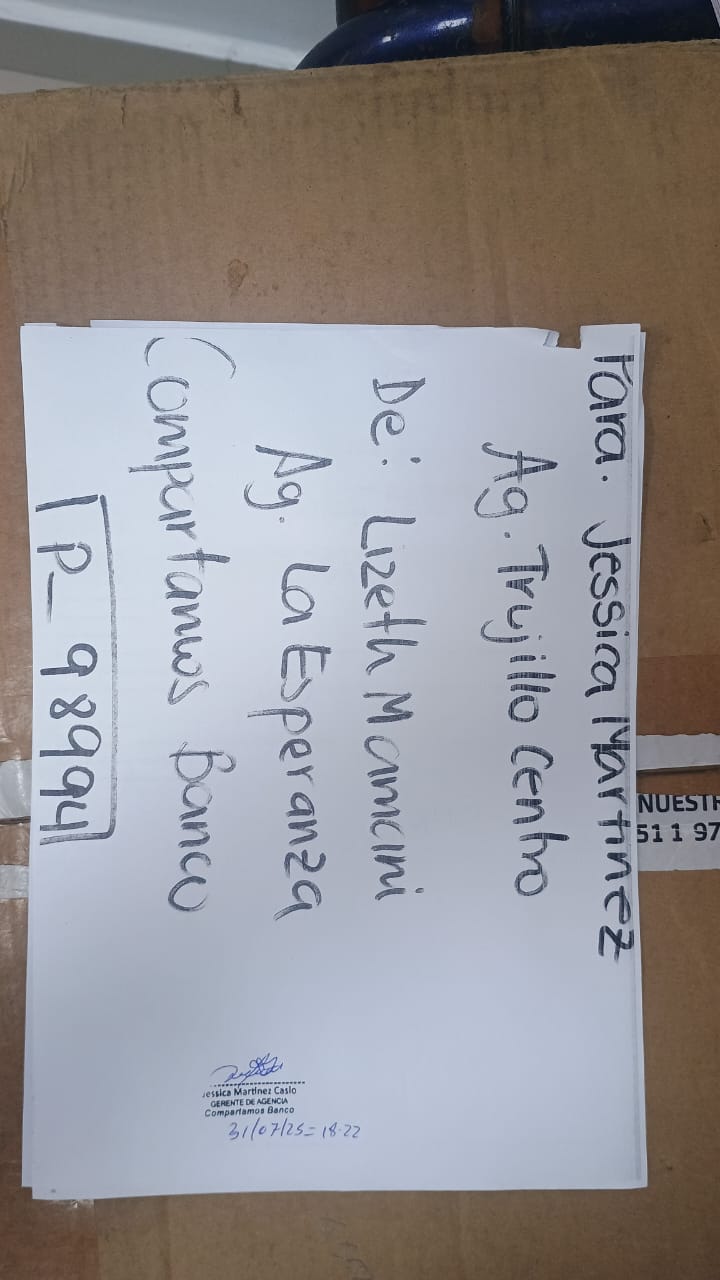 Para. Jessica Martinez
Ag. Trujillo Centro
De: Lizeth Mancini
Ag. La Esperanza
Compartamos Banco
P- 98994
Jessica Martinez Casio
GERENTE DE AGENCIA
Compartamos Banco
31/07/25= 18:22
NUESTR
51 1 97